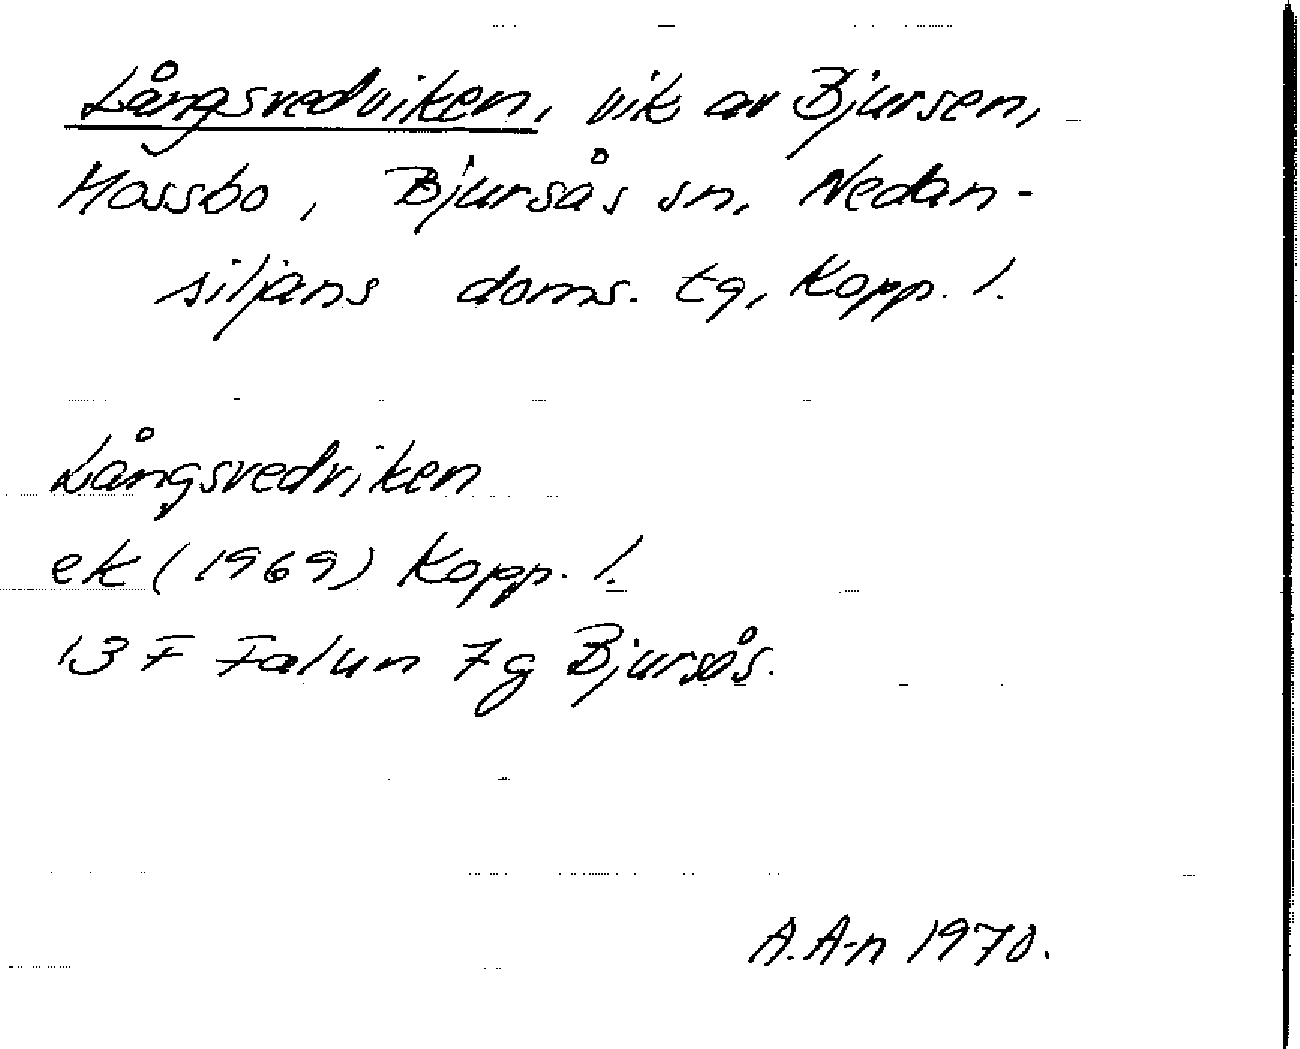 Långsvedviken, vik av Bjursen,
Mossbo, Bjursås sn, Nedan-
siljans doms. tg, Kopp. l.
Långsvedviken
ek (1969) Kopp. l.
13 F Falun 7g Bjursås.
A.A-n 1970.